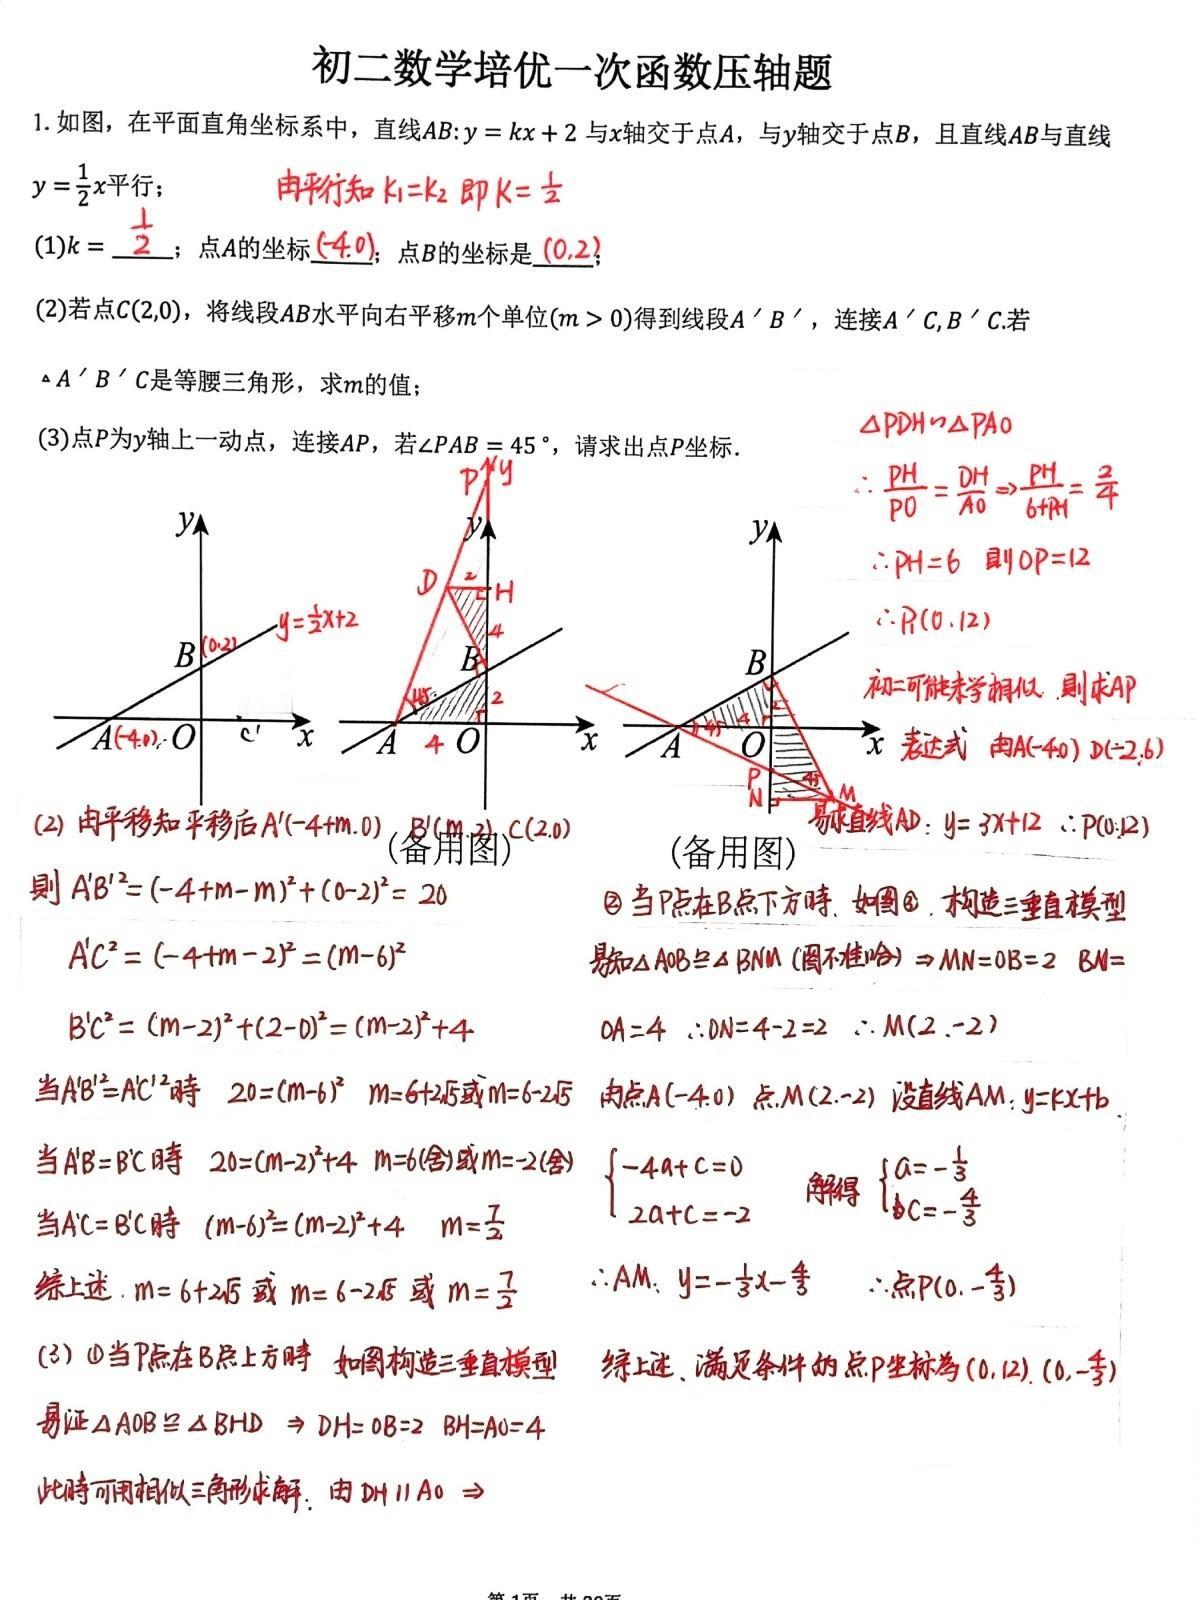 初二数学培优一次函数压轴题
1. 如图，在平面直角坐标系中，直线AB: y = kx + 2 与x轴交于点A，与y轴交于点B，且直线AB与直线
y = 1/2 x平行；
由平行知 K₁=K₂ 即 K = 1/2
(1)k = 1/2 ；点A的坐标(-4.0)；点B的坐标是(0.2)；
(2)若点C(2,0)，将线段AB水平向右平移m个单位(m > 0)得到线段A′B′，连接A′C, B′C.若
▵A′B′C是等腰三角形，求m的值；
(3)点P为y轴上一动点，连接AP，若∠PAB = 45°，请求出点P坐标.
△PDH∽△PAO
∴ PH/PO = DH/AO ⇒ PH/6+PH = 2/4
∴PH=6 则OP=12
∴P₁(0.12)
初二可能未学相似 则求AP
表达式 由A(-4.0) D(-2.6)
易求直线AD: y= 3x+12 ∴P(0.12)
y
B (0.2) y=1/2x+2
A (-4.0) O C' x
P y
y
D 2 H
4
B
45 2
A 4 O x
y
B
45 4 2
A O x
P 45
N M
(备用图)
(备用图)
(2) 由平移知平移后A'(-4+m.0) B'(m.2) C(2.0)
则 A'B'²=(-4+m-m)²+(0-2)²= 20
A'C² = (-4+m-2)² =(m-6)²
B'C² = (m-2)²+(2-0)²= (m-2)²+4
当A'B'²=A'C'²时 20=(m-6)² m=6+2√5或m=6-2√5
当A'B'=B'C时 20=(m-2)²+4 m=6(舍)或m=-2(舍)
当A'C=B'C时 (m-6)²=(m-2)²+4 m=7/2
综上述. m=6+2√5 或 m=6-2√5 或 m=7/2
(3) ①当P点在B点上方时 如图构造三垂直模型
易证△AOB≌△BHD ⇒ DH=OB=2 BH=AO=4
此时可用相似三角形求解. 由DH∥AO ⇒
②当P点在B点下方时、如图②、构造三垂直模型
易知△AOB≌△BNM (图不准哈) ⇒MN=OB=2 BN=
OA=4 ∴ON=4-2=2 ∴M(2.-2)
由点A(-4.0) 点M(2.-2) 设直线AM: y=kx+b
{-4a+c=0 2a+c=-2 解得 {a=-1/3 c=-4/3
∴AM: y=-1/3x-4/3 ∴点P(0.-4/3)
综上述、满足条件的点P坐标为(0,12).(0,-4/3)
第1页 共20页